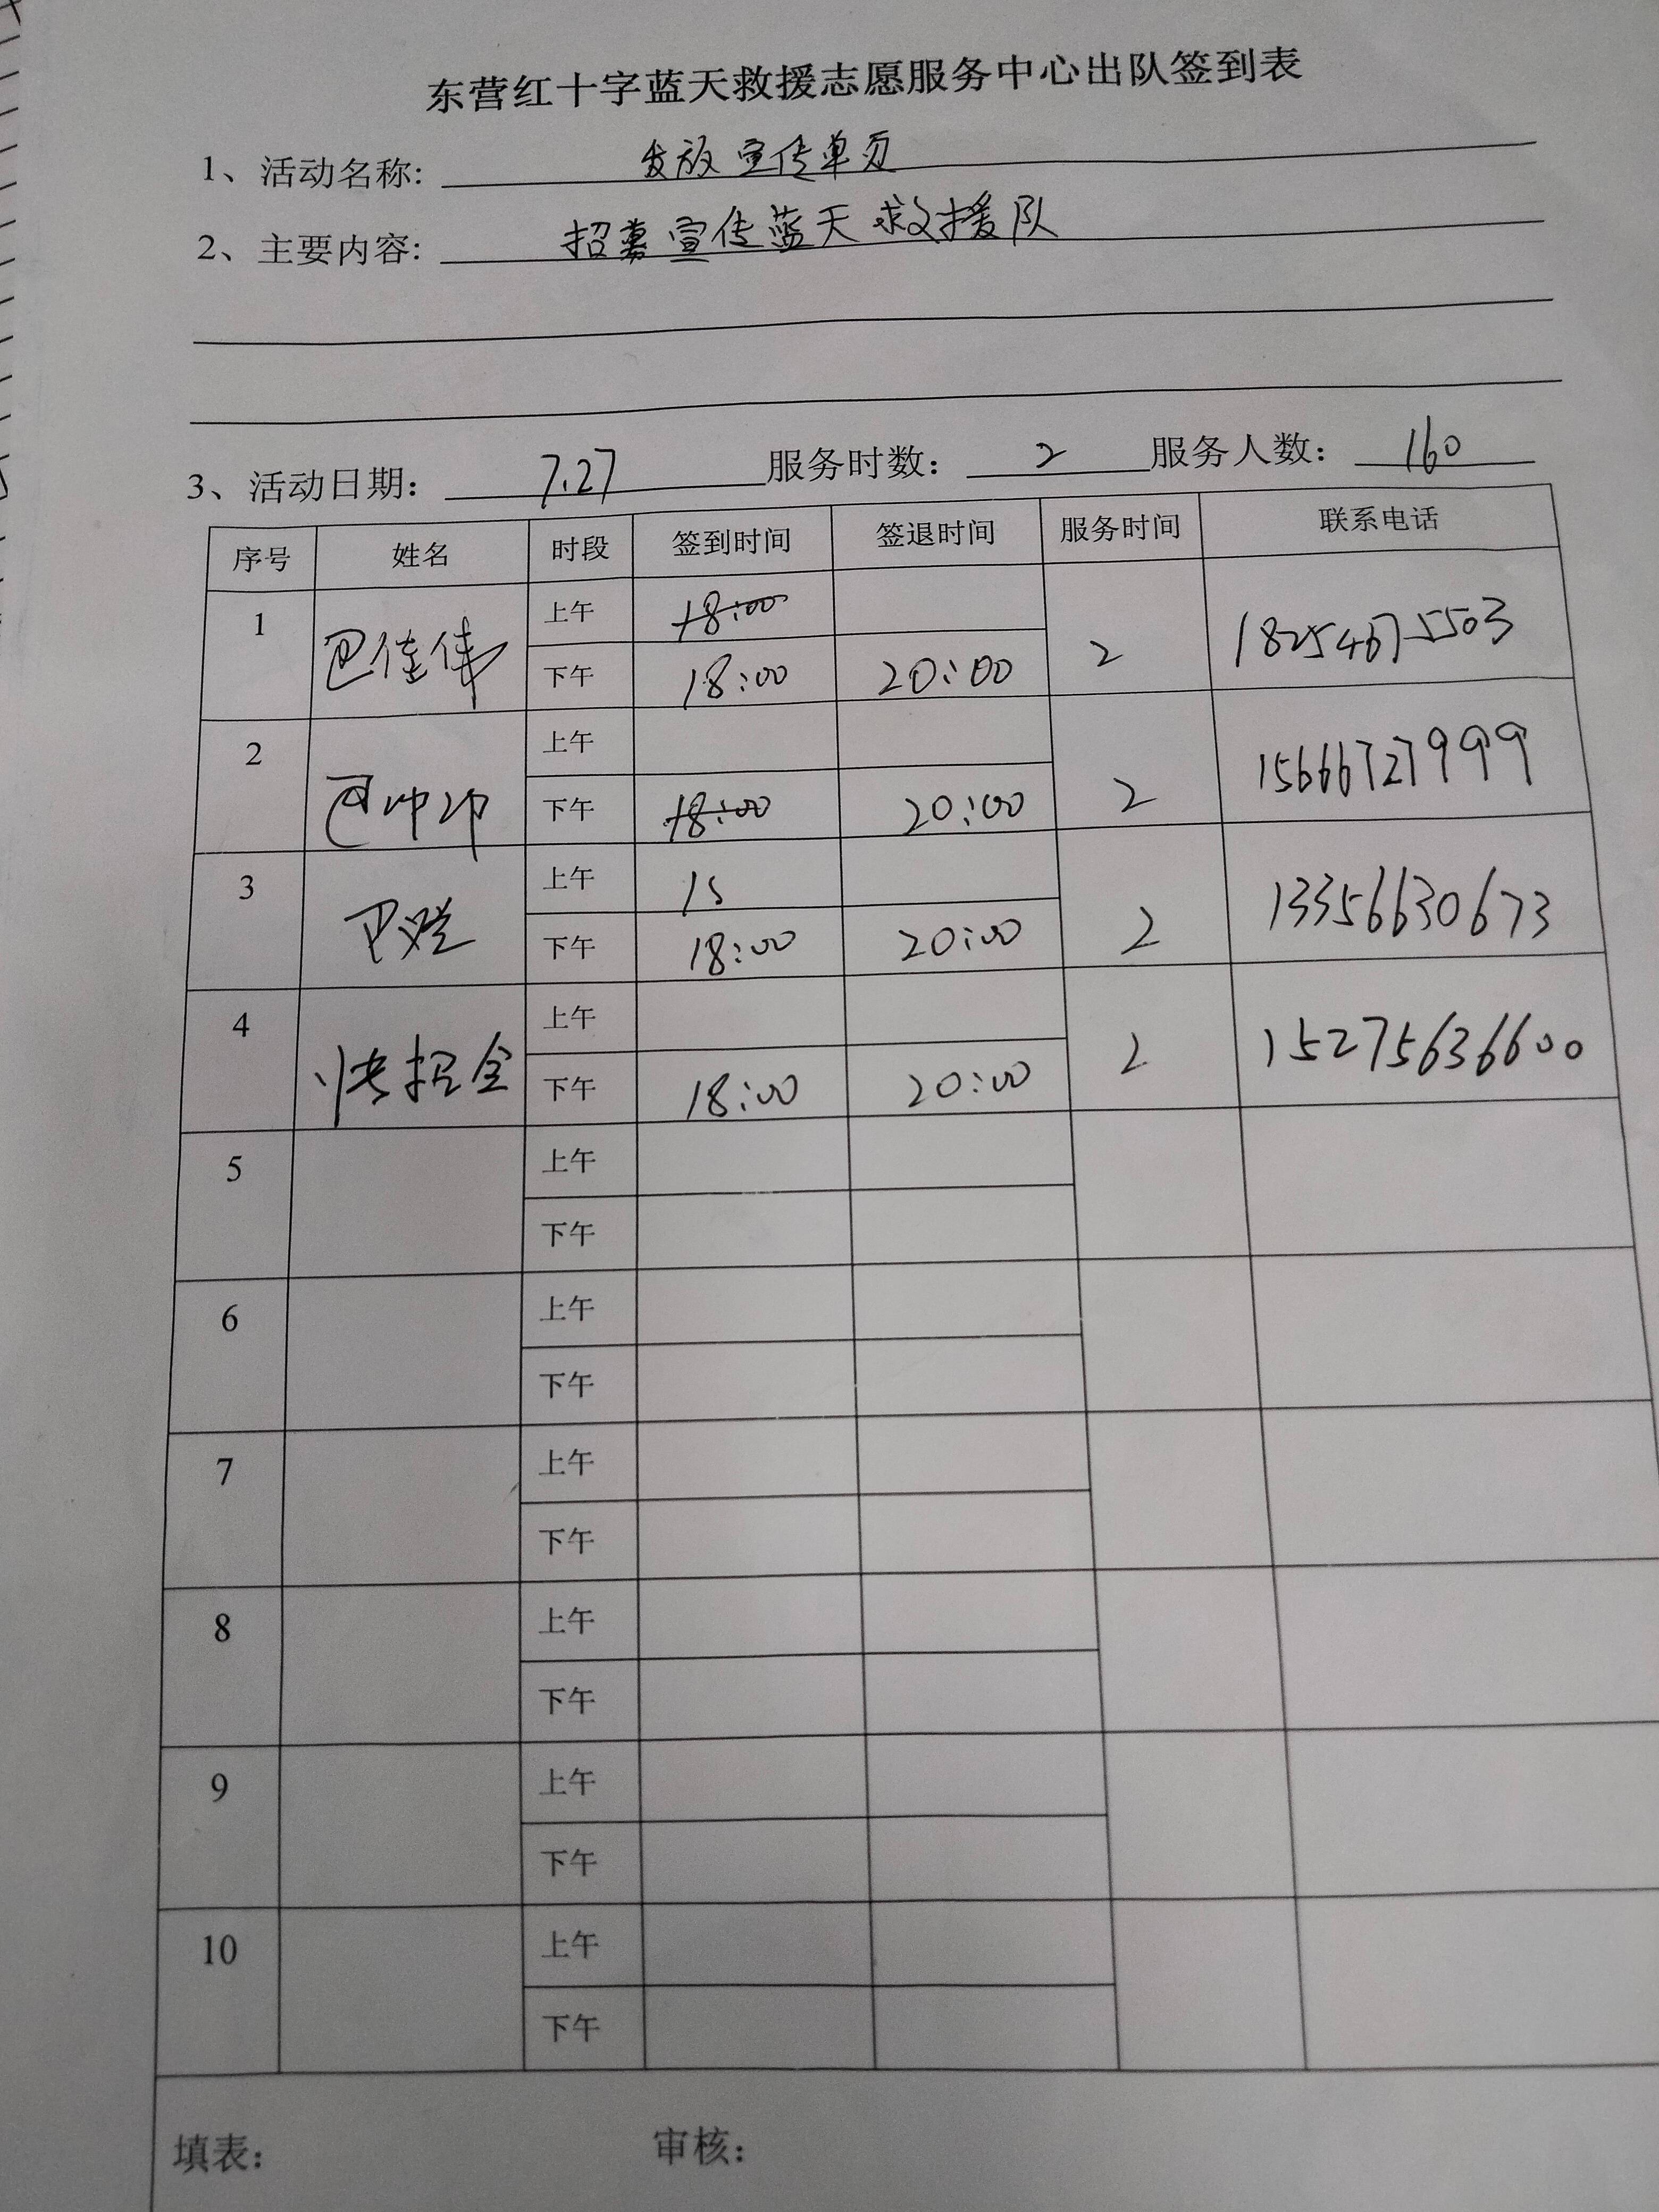 东营红十字蓝天救援志愿服务中心出队签到表
1、活动名称: 发放宣传单页
2、主要内容: 招募宣传蓝天救援队
3、活动日期: 7.27 服务时数: 2 服务人数: 160
序号 姓名 时段 签到时间 签退时间 服务时间 联系电话
1 巴佳伟 上午 18:00
下午 18:00 20:00 2 18254675503
2 上午
下午 18:00 20:00 2 15666727999
3 上午 15
下午 18:00 20:00 2 13356630673
4 上午
下午 18:00 20:00 2 15275636600
5 上午
下午
6 上午
下午
7 上午
下午
8 上午
下午
9 上午
下午
10 上午
下午
填表: 审核: